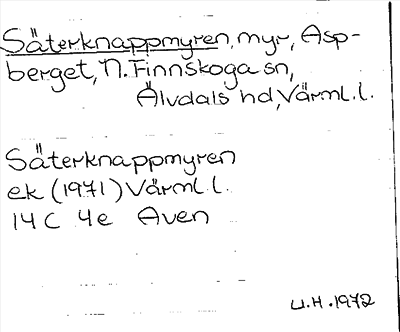 Säterknappmyren, myr, Asp-
berget, N. Finnskoga sn,
Älvdals hd, Värml. l.
Säterknappmyren
ek (1971) Värml. l.
14 C 4e Aven
U.H. 1972